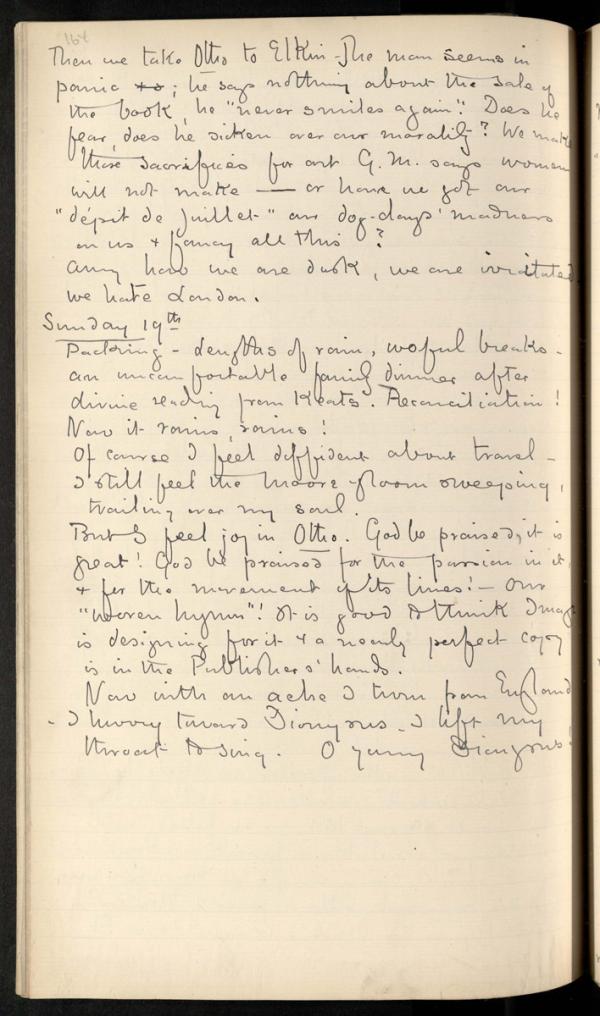 164
Then we take Otho to Elkin. The man seems in
panic to; he says nothing about the sale of
the book, he "never smiles again". Does he
fear, does he sicken over our morality? We make
those sacrifices for art G. M. says women
will not make — or have we got our
"dépit de Juillet" our dog-days' madness
on us & fancy all this ?
Any how we are dusk, we are irritated
we hate London.
Sunday 19th
Packing - lengths of rain, woful breaks -
an uncomfortable family dinner after
divine reading from Keats. Reconciliation!
Now it rains, rains!
Of course I feel diffident about travel -
I still feel the Moore gloom sweeping,
trailing over my soul.
But I feel joy in Otho. God be praised, it is
great! God be praised for the passion in it,
& for the movement of its lines! - Our
"woven hymn"! It is good to think Image
is designing for it & a nearly perfect copy
is in the Publishers' hands.
Now with an ache I turn from England
- I hurry toward Dionysus - I lift my
throat to sing. O young Dionysus!